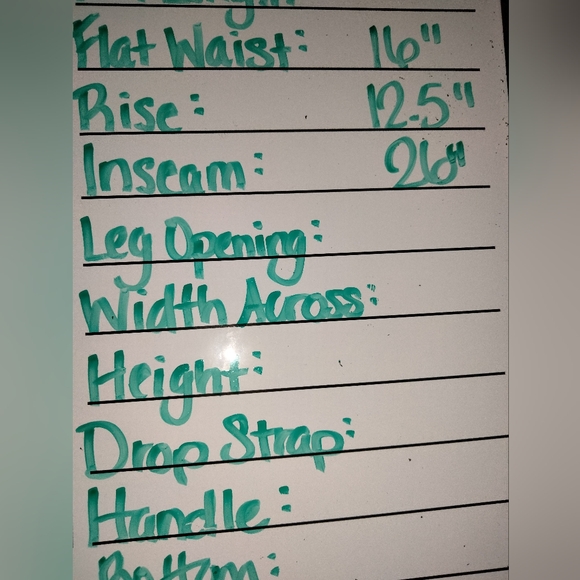 Flat Waist: 16"
Rise: 12.5"
Inseam: 26"
Leg Opening:
Width Across:
Height:
Drop Strap:
Handle:
Bottom: